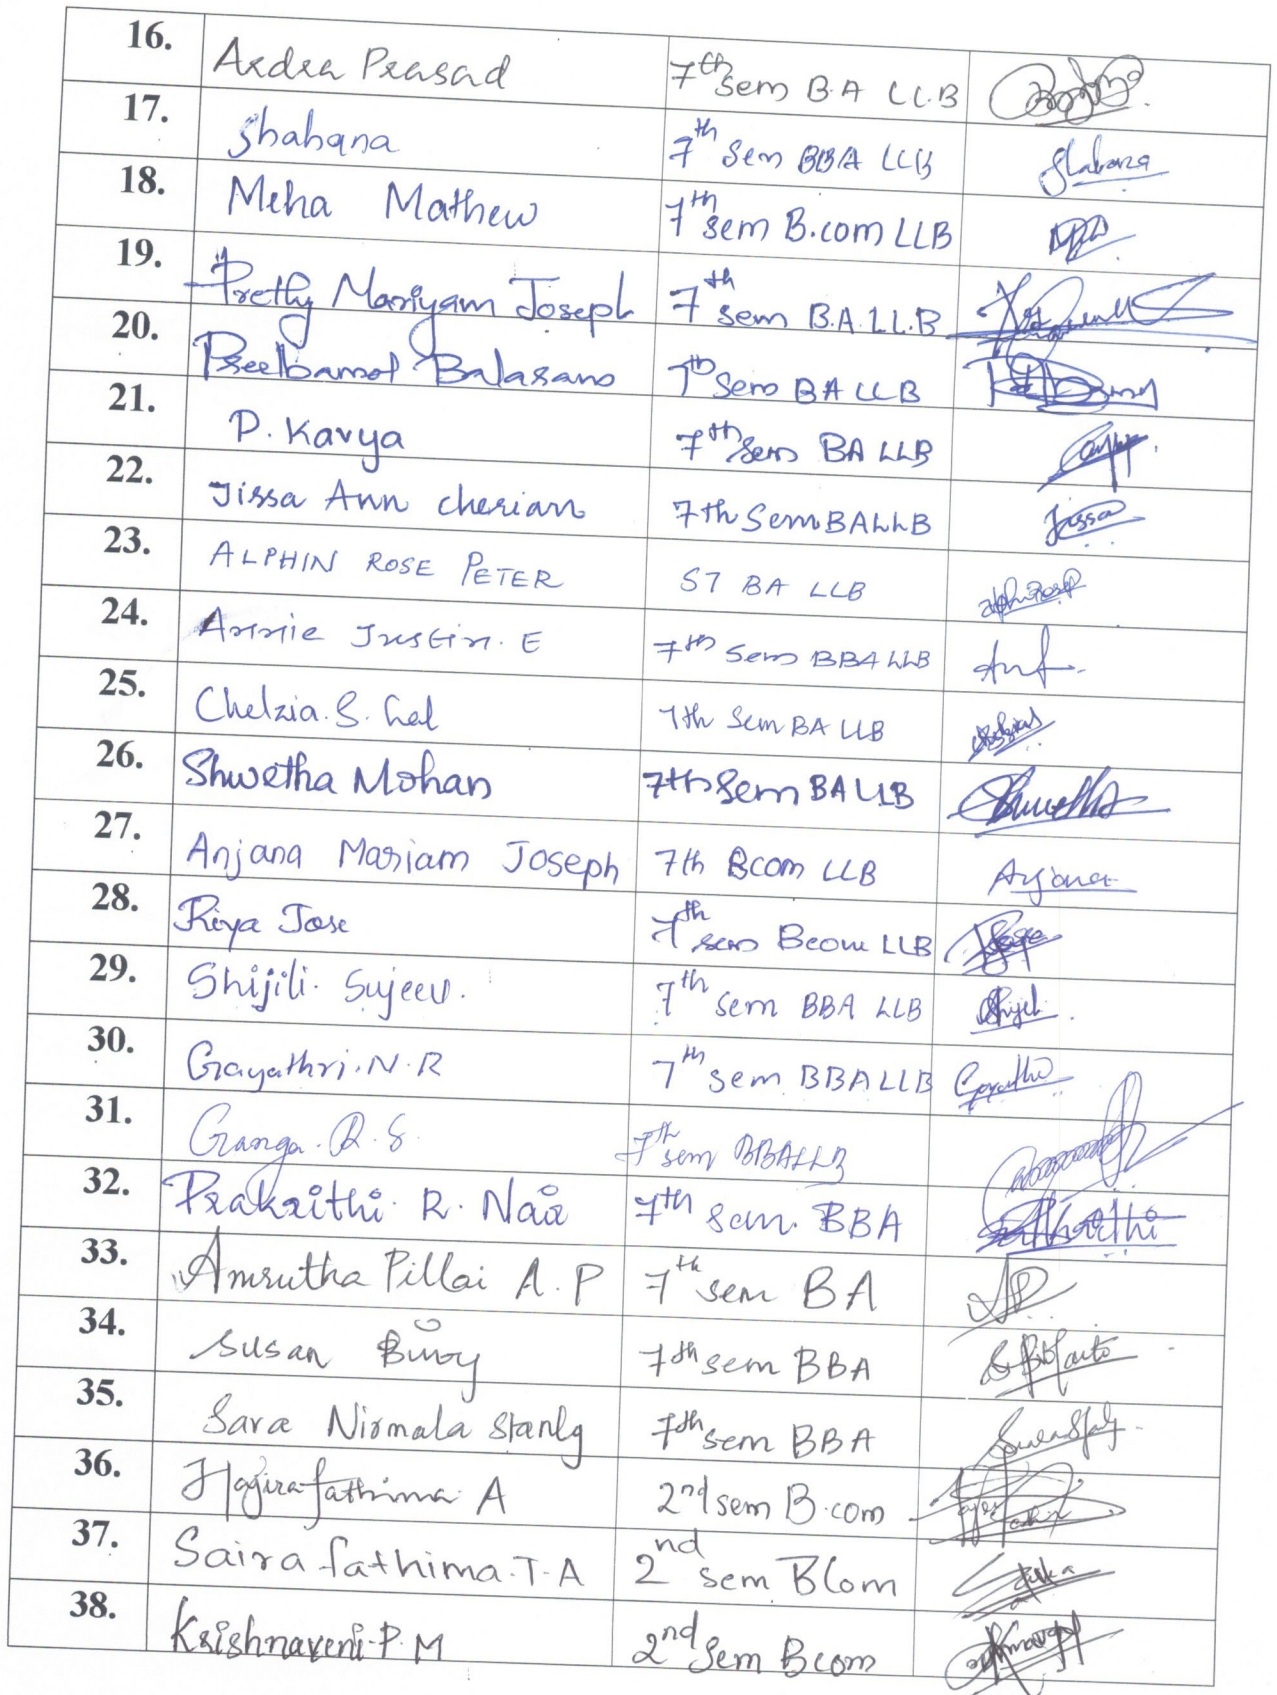 16. Ardra Prasad 7th sem B.A LL.B
17. Shabana 7th Sem BBA LLB Shabana
18. Meha Mathew 7th sem B.com LLB
19. Pretty Mariyam Joseph 7th sem B.A.LL.B
20. Balaramo 7th Sem BA LLB
21. P. Kavya 7th Sem BA LLB
22. Jissa Ann Cherian 7th Sem BALLB Jissa
23. ALPHIN ROSE PETER S7 BA LLB
24. Annie Justin. E 7th Sem BBA LLB
25. Chelzia. S. Lal 7th Sem BA LLB
26. Shwetha Mohan 7th Sem BA LLB Shwetha
27. Anjana Mariam Joseph 7th Bcom LLB Anjana
28. Riya Jose 7th sem Bcom LLB
29. Shijili. Sujeev. 7th sem BBA LLB
30. Gayathri. N. R 7th sem BBA LLB
31. Ganga. R. S. 7th sem BBALLB
32. Prakrithi. R. Nair 7th sem. BBA
33. Amrutha Pillai A. P 7th sem BA
34. Susan 7th sem BBA
35. Sara Nirmala Stanly 7th sem BBA
36. Hagira fathima A 2nd sem B.com
37. Saira fathima. T. A 2nd sem BCom
38. Krishnaveni. P. M 2nd Sem Bcom